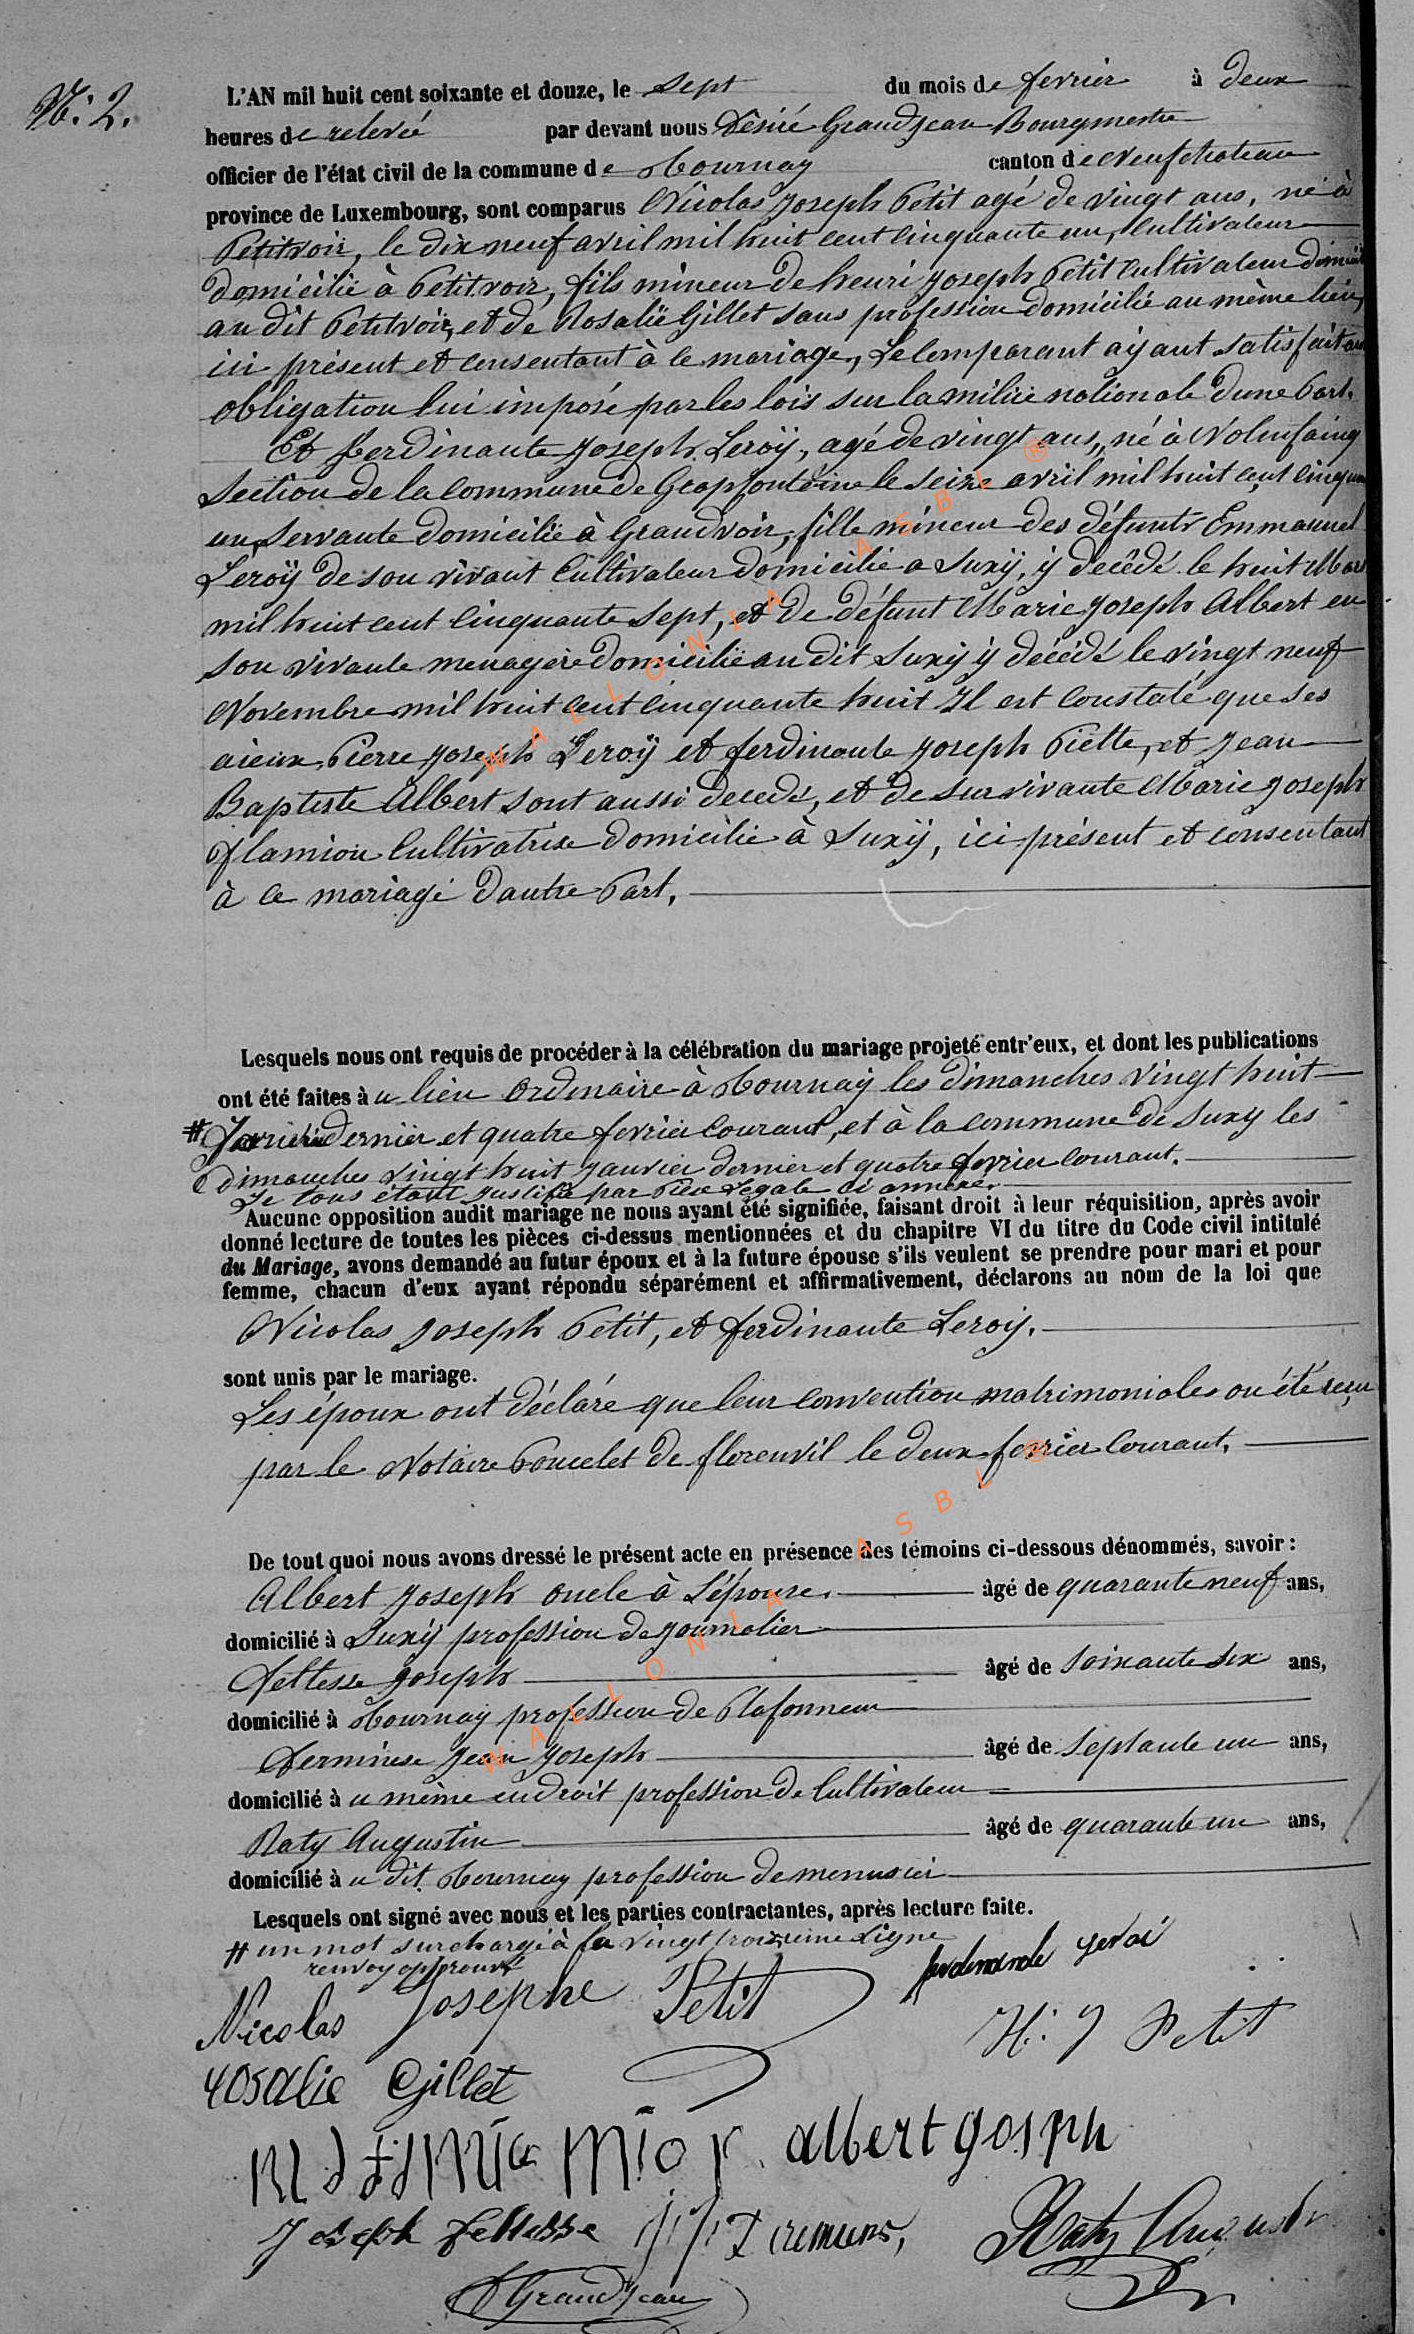 N.: 2.
L'AN mil huit cent soixante et douze, le sept du mois de fevrier à deux
heures de relevée par devant nous Désiré Grandjean Bourgmestre
officier de l'état civil de la commune de Tournay canton de Neufchateau
province de Luxembourg, sont comparus Nicolas Joseph Petit agé de vingt ans, né à
Petitvoir, le dix neuf avril mil huit cent cinquante un, Cultivateur
domicilié à Petitvoir, fils mineur de henri Joseph Petit Cultivateur domicilié
au dit Petitvoir, et de Rosalie Gillet sans profession domicilié au même lieu,
ici présent et consentant à ce mariage, Le Comparant ayant satisfait aux
obligation lui imposé par les lois sur la milice nationale d'une Part.
Et ferdinante Joseph Leroÿ, agé de vingt ans, né à Nolinfaing
Section de la Commune de Grapfontaine le seize avril mil huit cent cinquante
un, Servante domicilié à Grandvoir, fille mineur des défunts Emmanuel
Leroÿ de son vivant Cultivateur domicilié a Suxÿ, ÿ décédé le huit Mars
mil huit cent Cinquante Sept, et de défunt Marie Joseph Albert en
son vivante menagère domicilié au dit Suxÿ ÿ décédé le vingt neuf
Novembre mil huit cent cinquante huit Il est Constaté que ses
aieux, Pierre Joseph Leroÿ et ferdinante Joseph Piette, et Jean
Baptiste Albert sont aussi decedé, et de survivante Marie Joseph
flamion Cultivatrise domicilié à Suxÿ, ici présent et consentant
à ce mariage d'autre Part.
Lesquels nous ont requis de procéder à la célébration du mariage projeté entr'eux, et dont les publications
ont été faites à u lieu Ordenaire à Tournay les dimanches vingt huit
# Janvier dernier et quatre fevrier Courant, et à la commune de Suxy les
dimanches vingt huit janvier dernier et quatre fevrier Courant.
Le tous étant justifié par Pièce légale ci annexé.
Aucune opposition audit mariage ne nous ayant été signifiée, faisant droit à leur réquisition, après avoir
donné lecture de toutes les pièces ci-dessus mentionnées et du chapitre VI du titre du Code civil intitulé
du Mariage, avons demandé au futur époux et à la future épouse s'ils veulent se prendre pour mari et pour
femme, chacun d'eux ayant répondu séparément et affirmativement, déclarons au nom de la loi que
Nicolas Joseph Petit, et ferdinante Leroy.
sont unis par le mariage.
Les époux ont déclaré que leur Convention matrimoniales on été reçu
par le Notaire Poncelet de florenvil le deux fevrier Courant.
De tout quoi nous avons dressé le présent acte en présence des témoins ci-dessous dénommés, savoir :
Albert Joseph oncle à L'épouse. âgé de quarante neuf ans,
domicilié à Suxÿ profession de journalier
Joseph âgé de Soixante six ans,
domicilié à Tournay profession de Plafonneur
Jean Joseph âgé de Septante un ans,
domicilié à u même endroit profession de Cultivateur
Raty Augustin âgé de quarante un ans,
domicilié à u dit Tournay profession de menusier
Lesquels ont signé avec nous et les parties contractantes, après lecture faite.
# un mot surchargé à la vingt troisieme Ligne
renvoy approuvé
Nicolas Josephe Petit ferdinande Leroi
H: J Petit
rosalie Gillet
albert Josph
Joseph Raty Augustin
D Grandjean
WALLONIA ASBL ®
WALLONIA ASBL ®